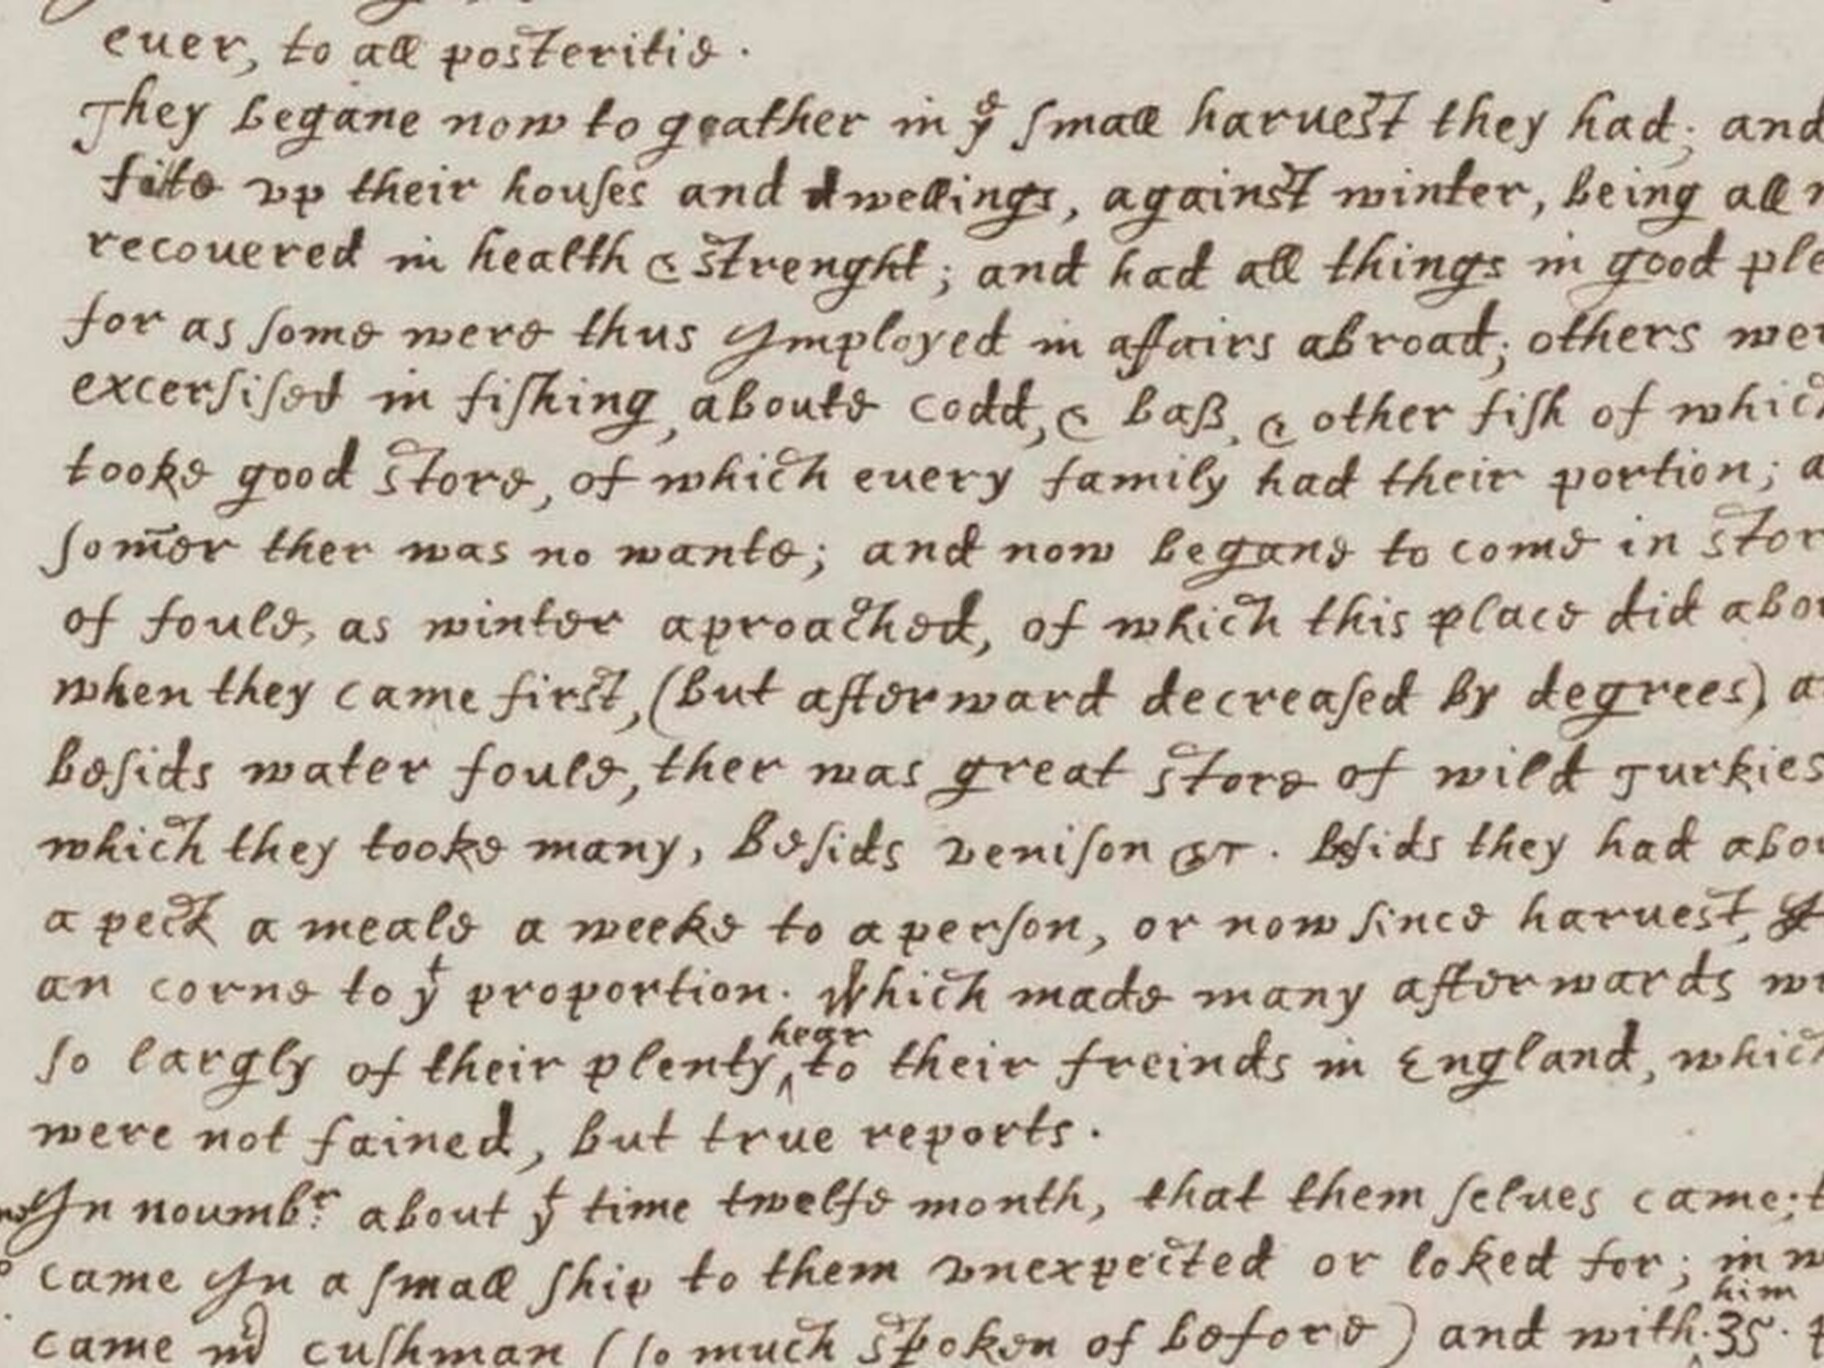 euer, to all posteritie.
They begane now to geather in yᵉ small haruest they had; and
fite vp their houses and dwellings, against winter, being all
recouered in health & strenght; and had all things in good ple
for as some were thus Imployed in affairs abroad; others wer
excersised in fishing, aboute codd, & bass, & other fish of which
tooke good store, of which euery family had their portion; a
som̅er ther was no wante; and now begane to come in stor
of foule, as winter aproached, of which this place did abou
when they came first, (but afterward decreased by degrees) a
besids water foule, ther was great store of wild Turkies
which they tooke many, Besids venison &c. Besids they had abou
a peck a meale a weeke to a person, or now since haruest, I
an corne to yᵗ proportion. Which made many afterwards wr
so largly of their plenty ^hear to their freinds in England, which
were not fained, but true reports.
In noumbʳ: about yᵗ time twelfe month, that them selues came; t
came In a small ship to them vnexpected or loked for; in w
came mʳ cushman (so much spoken of before) and with him .35.